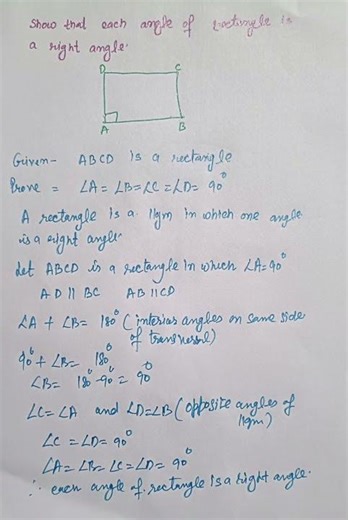 Show that each angle of rectangle is
a right angle.
D C
A B
Given - ABCD is a rectangle
Prove = ∠A = ∠B = ∠C = ∠D = 90°
A rectangle is a ||gm in which one angle
is a right angle.
Let ABCD is a rectangle in which ∠A = 90°
AD || BC AB || CD
∠A + ∠B = 180° (interias angles on same side
of transversal)
90° + ∠B = 180°
∠B = 180° - 90° = 90°
∠C = ∠A and ∠D = ∠B (opposite angles of
||gm)
∠C = ∠D = 90°
∠A = ∠B = ∠C = ∠D = 90°
∴ each angle of rectangle is a right angle.